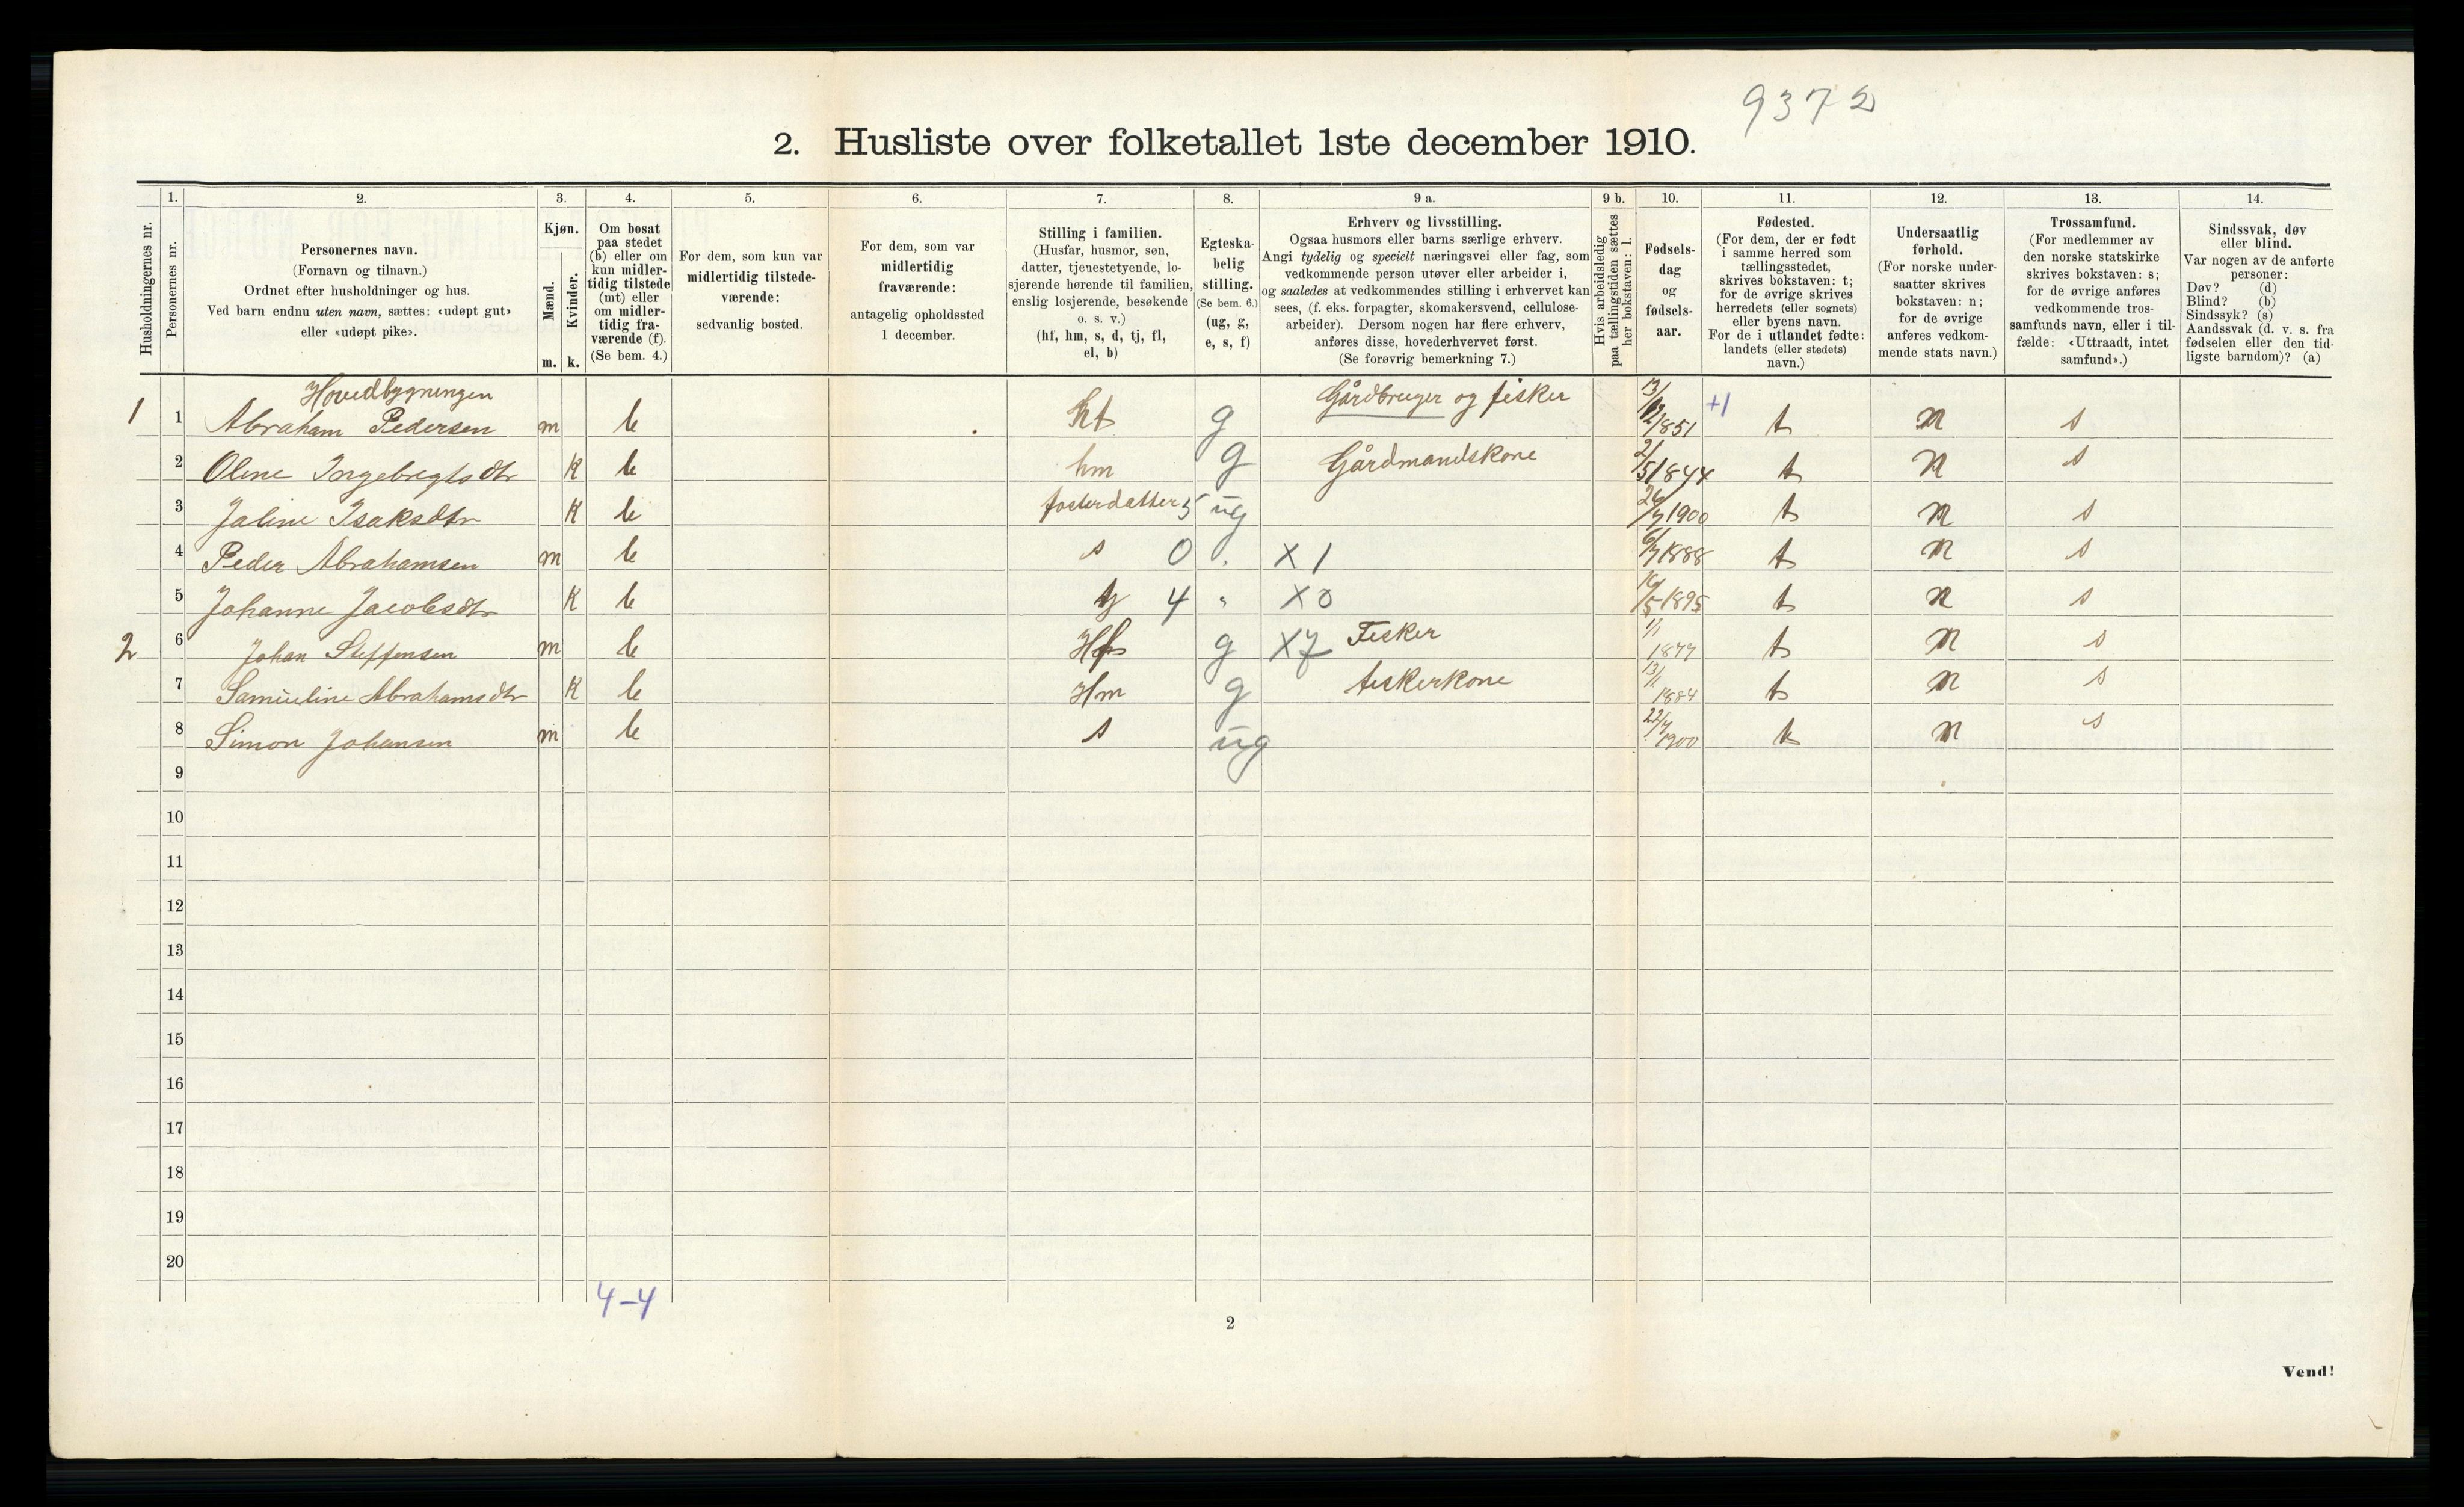 9372
2. Husliste over folketallet 1ste december 1910.
Husholdningernes nr.
1. Personernes nr.
2. Personernes navn. (Fornavn og tilnavn.) Ordnet efter husholdninger og hus. Ved barn endnu uten navn, sættes: «udøpt gut» eller «udøpt pike».
3. Kjøn. Mænd. m. Kvinder. k.
4. Om bosat paa stedet (b) eller om kun midlertidig tilstede (mt) eller om midlertidig fraværende (f). (Se bem. 4.)
5. For dem, som kun var midlertidig tilstedeværende: sedvanlig bosted.
6. For dem, som var midlertidig fraværende: antagelig opholdssted 1 december.
7. Stilling i familien. (Husfar, husmor, søn, datter, tjenestetyende, losjerende hørende til familien, enslig losjerende, besøkende o. s. v.) (hf, hm, s, d, tj, fl, el, b)
8. Egteskabelig stilling. (Se bem. 6.) (ug, g, e, s, f)
9 a. Erhverv og livsstilling. Ogsaa husmors eller barns særlige erhverv. Angi tydelig og specielt næringsvei eller fag, som vedkommende person utøver eller arbeider i, og saaledes at vedkommendes stilling i erhvervet kan sees, (f. eks. forpagter, skomakersvend, cellulosearbeider). Dersom nogen har flere erhverv, anføres disse, hovederhvervet først. (Se forøvrig bemerkning 7.)
9 b. Hvis arbeidsledig paa tællingstiden sættes her bokstaven: l.
10. Fødselsdag og fødselsaar.
11. Fødested. (For dem, der er født i samme herred som tællingsstedet, skrives bokstaven: t; for de øvrige skrives herredets (eller sognets) eller byens navn. For de i utlandet fødte: landets (eller stedets) navn.)
12. Undersaatlig forhold. (For norske undersaatter skrives bokstaven: n; for de øvrige anføres vedkommende stats navn.)
13. Trossamfund. (For medlemmer av den norske statskirke skrives bokstaven: s; for de øvrige anføres vedkommende trossamfunds navn, eller i tilfælde: «Uttraadt, intet samfund».)
14. Sindssvak, døv eller blind. Var nogen av de anførte personer: Døv? (d) Blind? (b) Sindssyk? (s) Aandssvak (d. v. s. fra fødselen eller den tidligste barndom)? (a)
Hovedbygningen
1 1 Abraham Pedersen m b hf g Gårdbruger og fisker 13/12 1851 +1 t n s
2 Oline Ingebrigtsdtr K b hm g Gårdmandskone 2/5 1844 t n s
3 Jaline Isaksdtr K b fosterdatter 5 ug 26/7 1900 t n s
4 Peder Abrahamsen m b s 0 X 1 1888 t n s
5 Johanne Jacobsdtr K b tj 4 " X 0 16/5 1895 t n s
2 6 Johan Steffensen m b Hf g X7 Fisker 1/1 1877 t n s
7 Samueline Abrahamsdtr K b Hm g fiskerkone 13/1 1884 t n s
8 Simon Johansen m b s ug 22/7 1900 t n s
9
10
11
12
13
14
15
16
17
18
19
20
4-4
2
Vend!